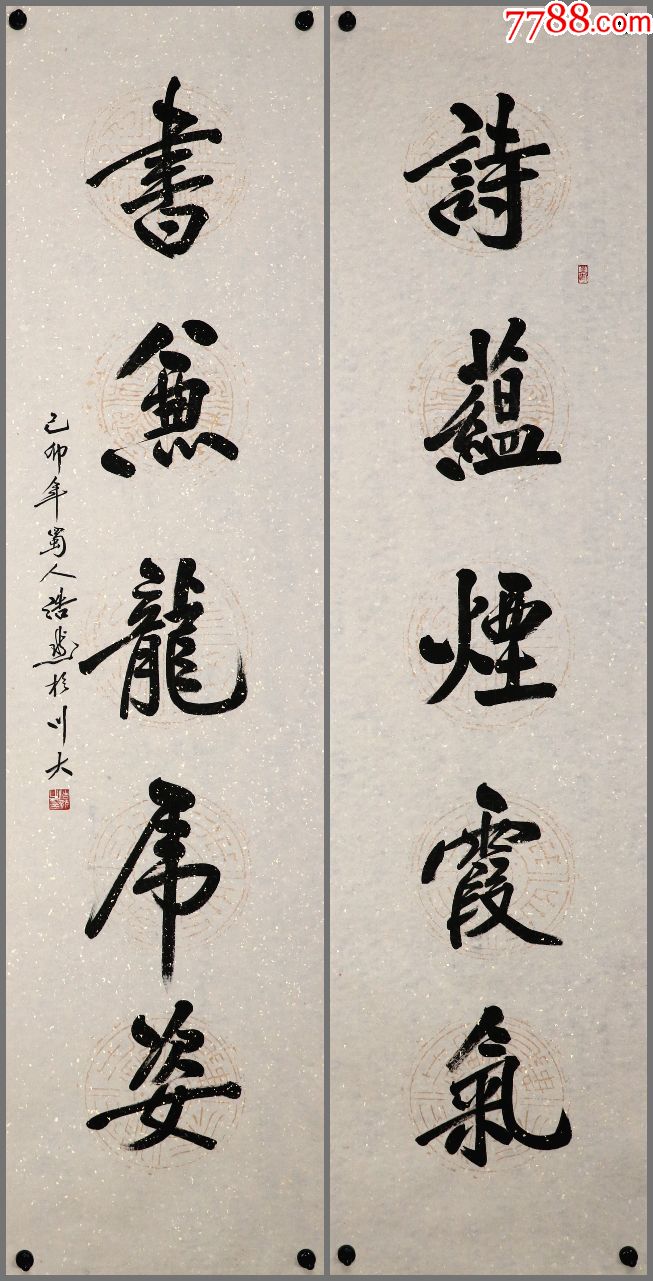 7788.com
詩蘊煙霞氣
書兼龍虎姿
己卯年蜀人浩然於川大